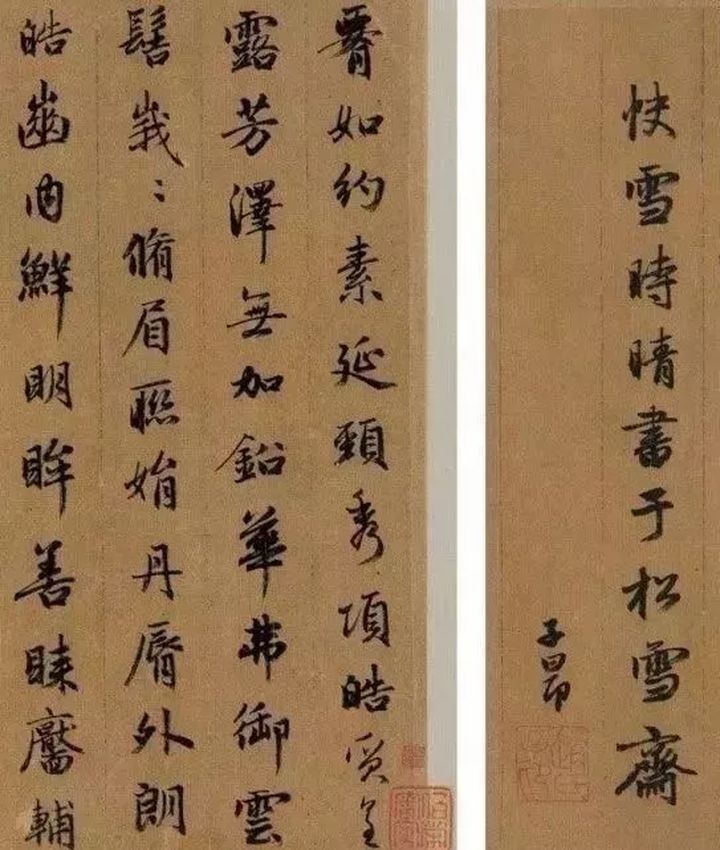 快雪時晴書于松雪齋
子昂
腰如約素延頸秀項皓質呈
露芳澤無加鉛華弗御雲
髻峩〻脩眉聯娟丹脣外朗
皓齒内鮮明眸善睞靨輔